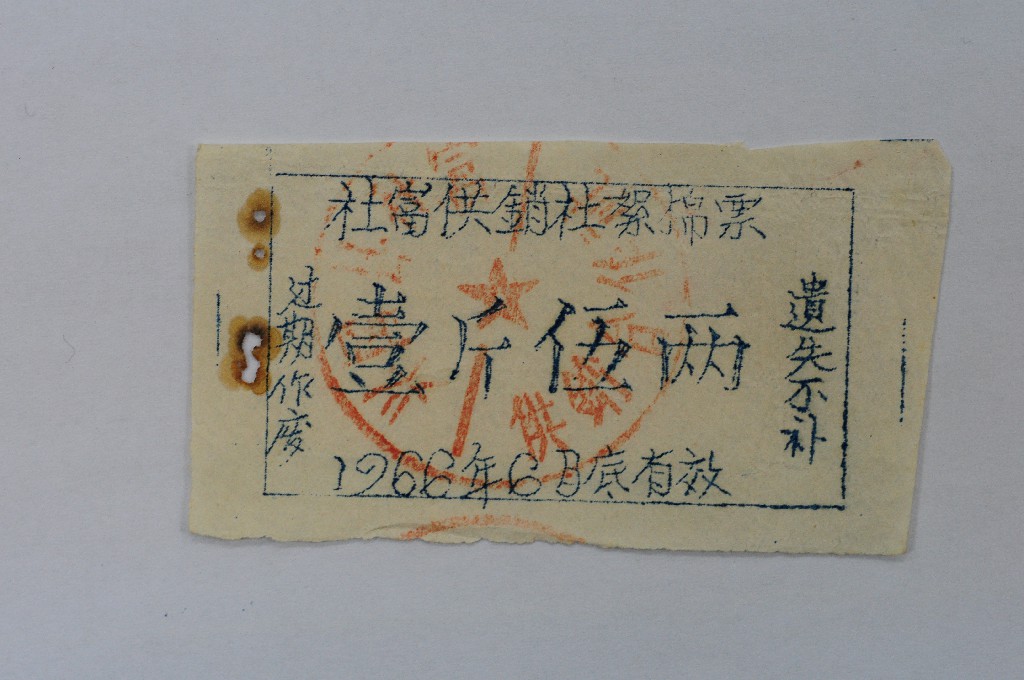 社富供銷社絮棉票
过期作废
壹斤伍两
遺失不补
1966年6月底有效
供銷